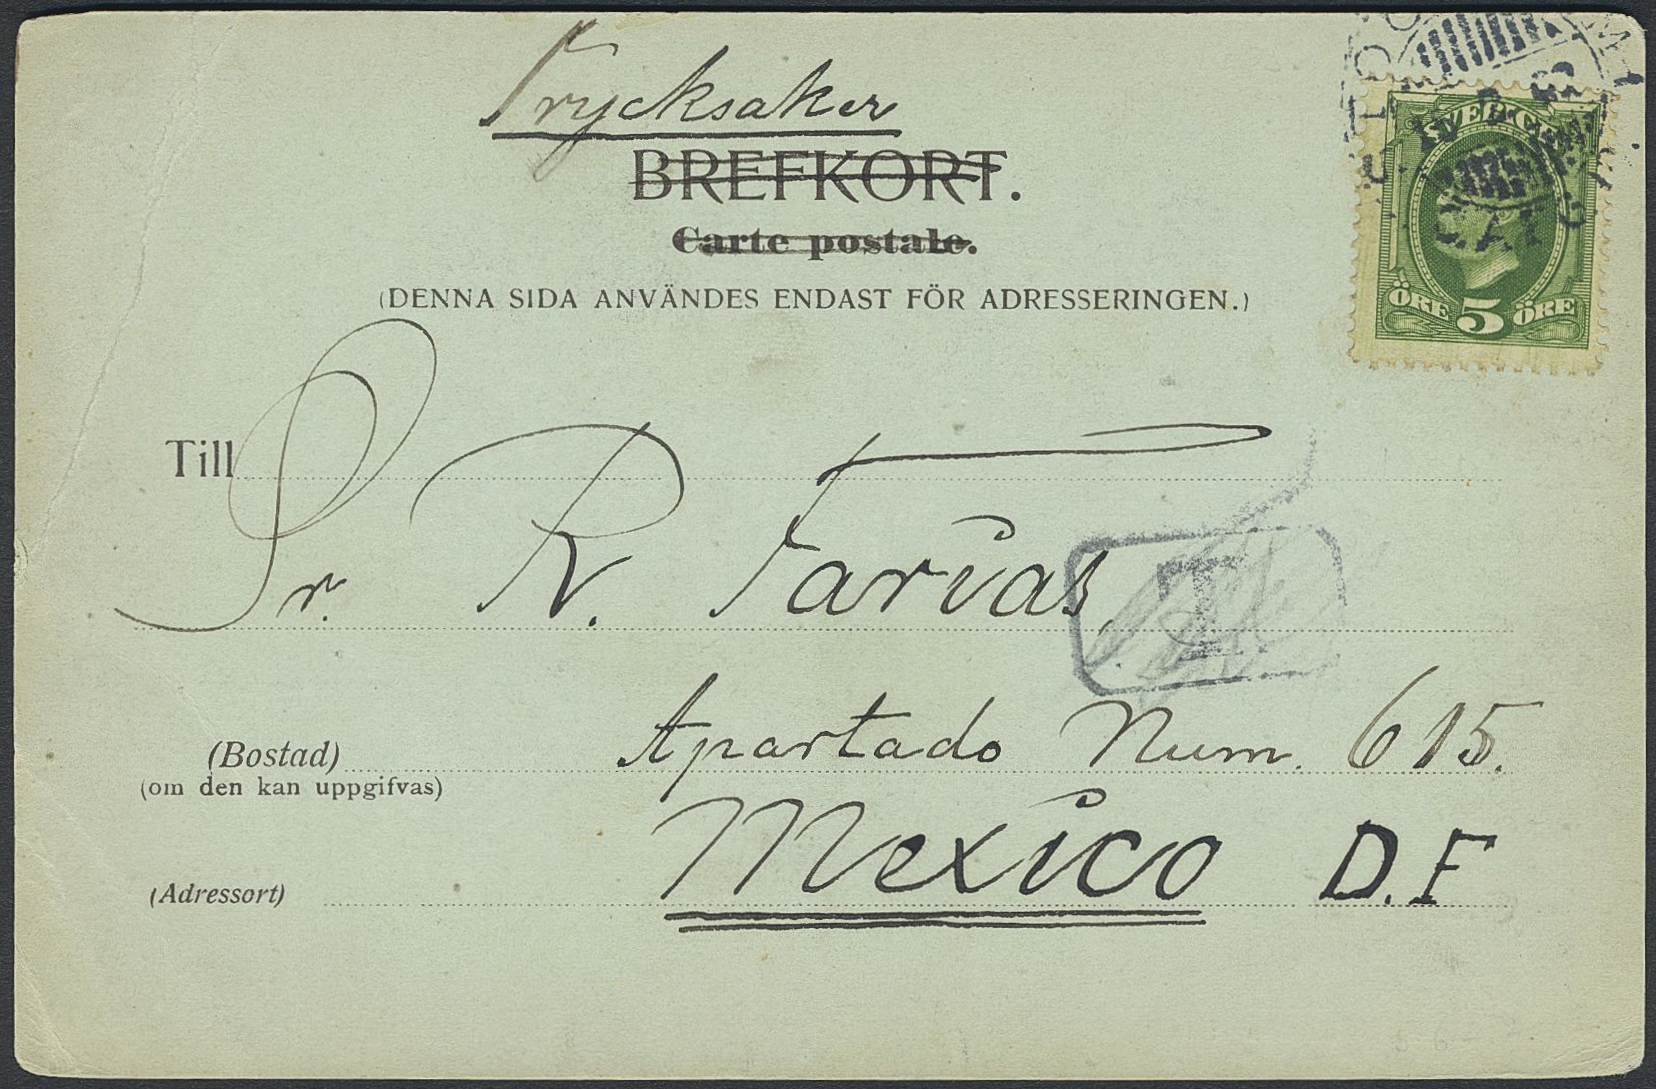 Trycksaker
BREFKORT.
Carte postale.
(DENNA SIDA ANVÄNDES ENDAST FÖR ADRESSERINGEN.)
SVERIGE
ÖRE 5 ÖRE
Till
Sr. R. Farias,
T
(Bostad) Apartado Num. 615.
(om den kan uppgifvas)
(Adressort) Mexico D.F